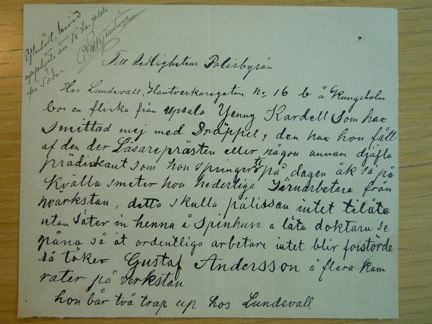 Till Sedlighetens Polisbyrån
Hos Lundevall, Hantverkaregatan No 16 b å Kungsholm
bor en flicka från Upsala Yenny Kardell Som har
Smittad mej med Drappel, den har hon fått
af den der Läsareprästen eller någon annan djäfla
prädikant som hon springer på dagen åk så på
kvälla smeter hos hederliga Järnarbetare från
värkstan, detta skulla pålissan intet tilåta
utan Säter in henna å Spinhuse a låta doktarn se
på na så at ordentliga arbetare intet blir förstörde
så töker Gustaf Andersson å flera kam
rater på verkstan
hon bår två trap up hos Lundevall